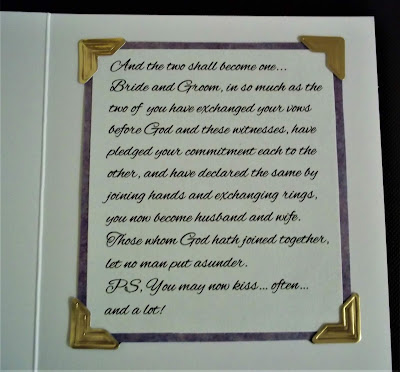 And the two shall become one...
Bride and Groom, in so much as the
two of you have exchanged your vows
before God and these witnesses, have
pledged your commitment each to the
other, and have declared the same by
joining hands and exchanging rings,
you now become husband and wife.
Those whom God hath joined together,
let no man put asunder.
PS, You may now kiss... often...
and a lot!